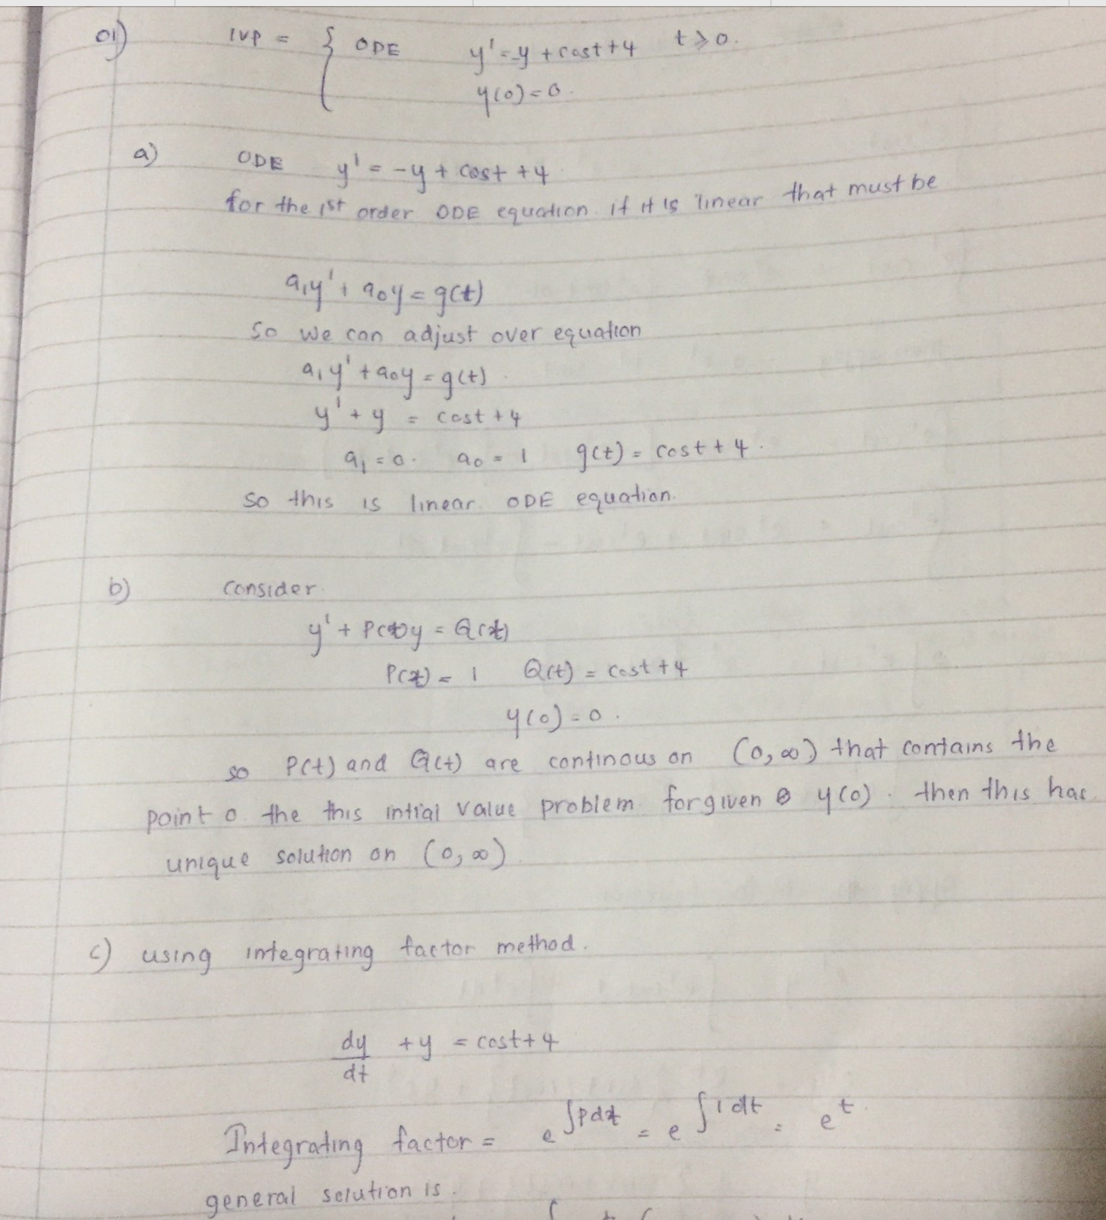 01) IVP = { ODE y' = -y + cost + 4 t ⩾ 0.
y(0) = 0.
a) ODE y' = -y + cost + 4
for the 1st order ODE equation if it is linear that must be
a₁y' + a₀y = g(t)
So we can adjust over equation
a₁y' + a₀y = g(t).
y' + y = cost + 4
a₁ = 0. a₀ = 1 g(t) = cost + 4.
so this is linear ODE equation.
b) consider.
y' + P(t)y = Q(t)
P(t) = 1 Q(t) = cost + 4
y(0) = 0.
so P(t) and Q(t) are continous on (0, ∞) that contains the
point 0. the this intial value problem for given y(0). then this has
unique solution on (0, ∞)
c) using integrating factor method.
dy/dt + y = cost + 4
Integrating factor = e^∫Pdt = e^∫1dt = e^t
general solution is.